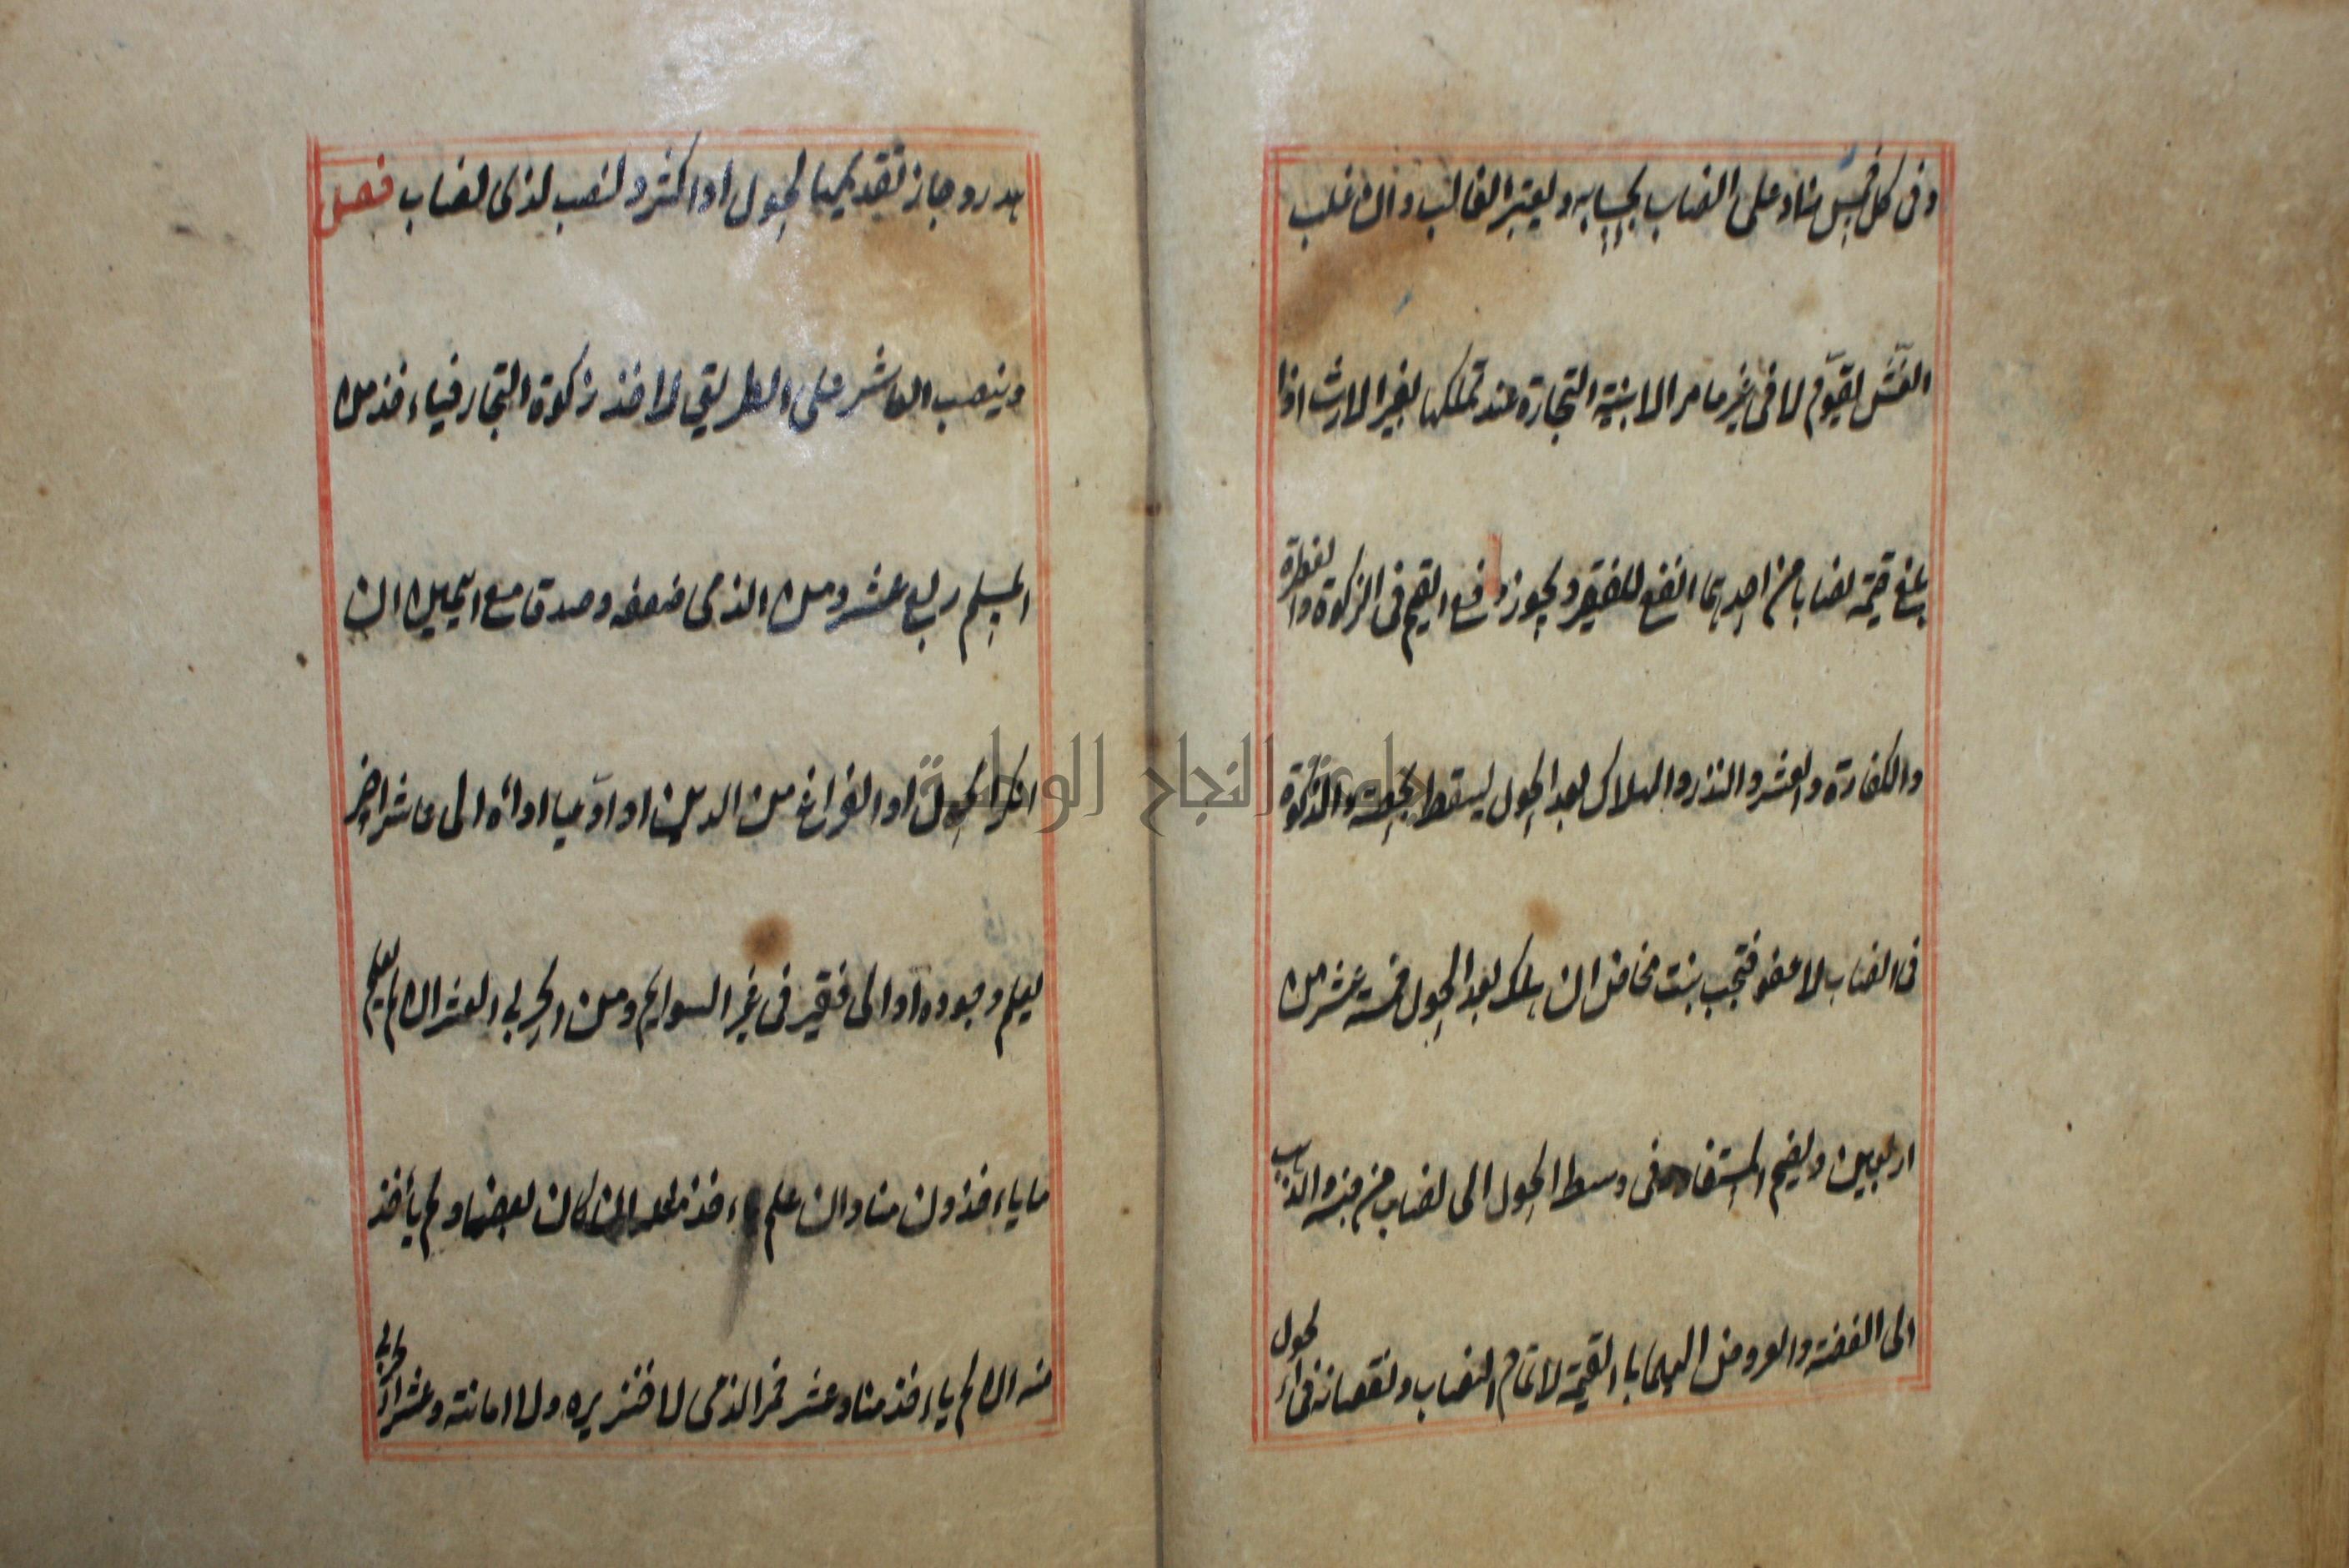 وفى كل خمس زاد على النصاب بحسابه ويعتبر الغالب وان غلب
الغش يقوم لا فى غير ما مر الا بنية التجارة عند تملكها بغير الارث اذا
بلغ قيمته نصابا من احدهما انفع للفقير ويجوز دفع القيم فى الزكوة والفطرة
والكفارة والعشر والنذر والهلاك بعد الحول يسقط بحصته والزكوة
فى النصاب لا عفو فتجب بنت مخاض ان هلك بعد الحول خمسة عشر من
اربعين ويضم المستفاد فى وسط الحول الى نصاب من جنسه والذهب
الى الفضة والعروض اليهما باالقيمة لاتمام النصاب ونقصانه فى الحول
هدر وجاز تقديمها لحول او اكثر ولنصب لذى نصاب فصل
وينصب العاشر على الطريق لاخذ زكوة التجار فياءخذ من
المسلم ربع عشر ومن الذمى ضعفه وصدقا مع اليمين ان
انكرا الحول او الفراغ من الدين او ادعيا اداه الى عاشر اخر
يعلم وجوده او الى فقير فى غير السوايم ومن الحربى العشر ان لم يعلم
ما ياءخذون منا وان علم اءخذ مثله ان كان بعضا ولم يأخذ
منه ان لم ياءخذ منا وعشر خمر الذمى لا خنزيره ولا امانته وعشر الحربى
حاوي النجاح الوطنية